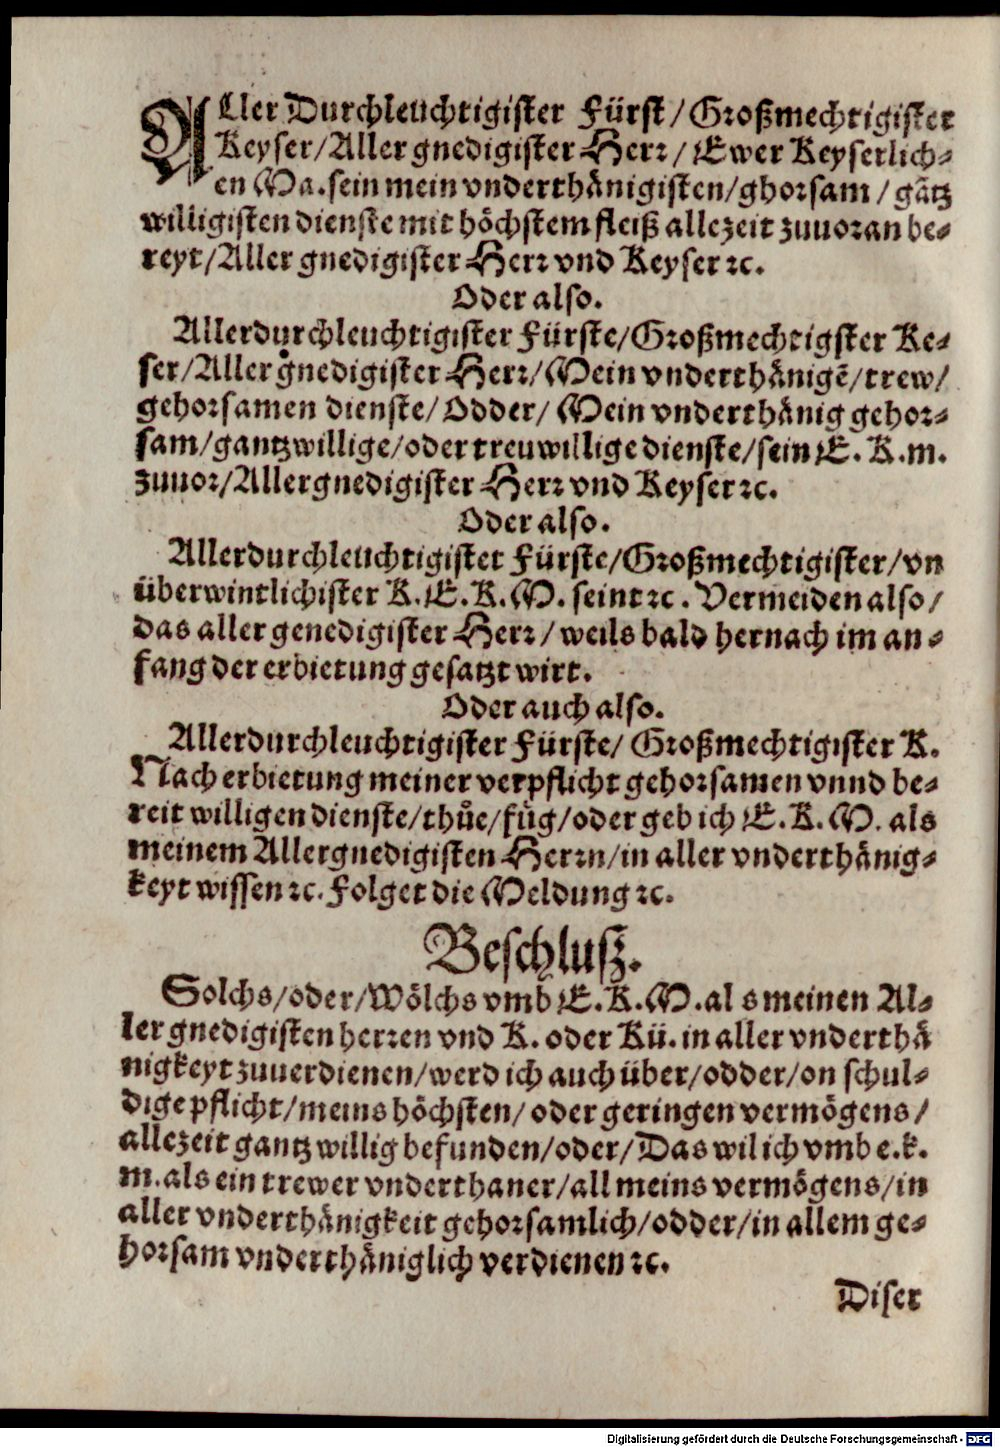 ALler Durchleuchtigister Fürst / Großmechtigister
Keyser / Aller gnedigister Herr / Ewer Keyserlich⸗
en Ma. sein mein vnderthänigisten / ghorsam / gātz
willigisten dienste mit höchstem fleiß allezeit zuuoran be⸗
reyt / Aller gnedigister Herr vnd Keyser ꝛc.
Oder also.
Allerdurchleuchtigister Fürste / Großmechtigster Ke⸗
ser / Aller gnedigister Herr / Mein vnderthänigē / trew /
gehorsamen dienste / Odder / Mein vnderthänig gehor⸗
sam / gantzwillige / oder treuwillige dienste / sein E. K. m.
zuuor / Allergnedigister Herr vnd Keyser ꝛc.
Oder also.
Allerdurchleuchtigister Fürste / Großmechtigister / vn
überwintlichister K. E. K. M. seint ꝛc. Vermeiden also /
das aller genedigister Herr / weils bald hernach im an⸗
fang der erbietung gesatzt wirt.
Oder auch also.
Allerdurchleuchtigister Fürste / Großmechtigister K.
Nach erbietung meiner verpflicht gehorsamen vnnd be⸗
reit willigen dienste / thůe / fůg / oder geb ich E. K. M. als
meinem Allergnedigisten Herrn / in aller vnderthänig⸗
keyt wissen ꝛc. Folget die Meldung ꝛc.
Beschlusz.
Solchs / oder / Wölchs vmb E. K. M. als meinen Al⸗
ler gnedigisten herren vnd K. oder Kü. in aller vnderthä
nigkeyt zuuerdienen / werd ich auch über / odder / on schul⸗
dige pflicht / meins höchsten / oder geringen vermögens /
allezeit gantz willig befunden / oder / Das wil ich vmb e. k.
m. als ein trewer vnderthaner / all meins vermögens / in
aller vnderthänigkeit gehorsamlich / odder / in allem ge⸗
horsam vnderthäniglich verdienen ꝛc.
Diser
Digitalisierung gefördert durch die Deutsche Forschungsgemeinschaft - DFG